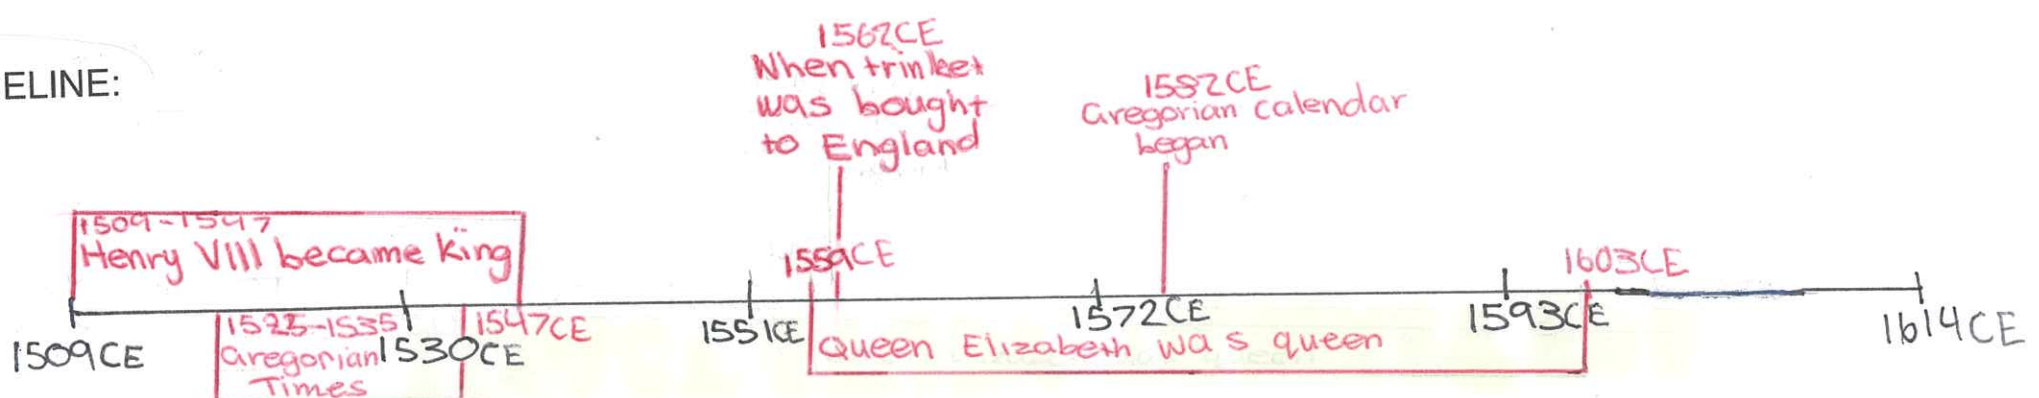 ELINE:
1562CE
When trinket
was bought
to England
1582CE
Gregorian Calendar
began
1509-1547
Henry VIII became King
1559CE
1603CE
1509CE
1525-1535
Gregorian
Times
1530CE
1547CE
1551CE
Queen Elizabeth was queen
1572CE
1593CE
1614CE